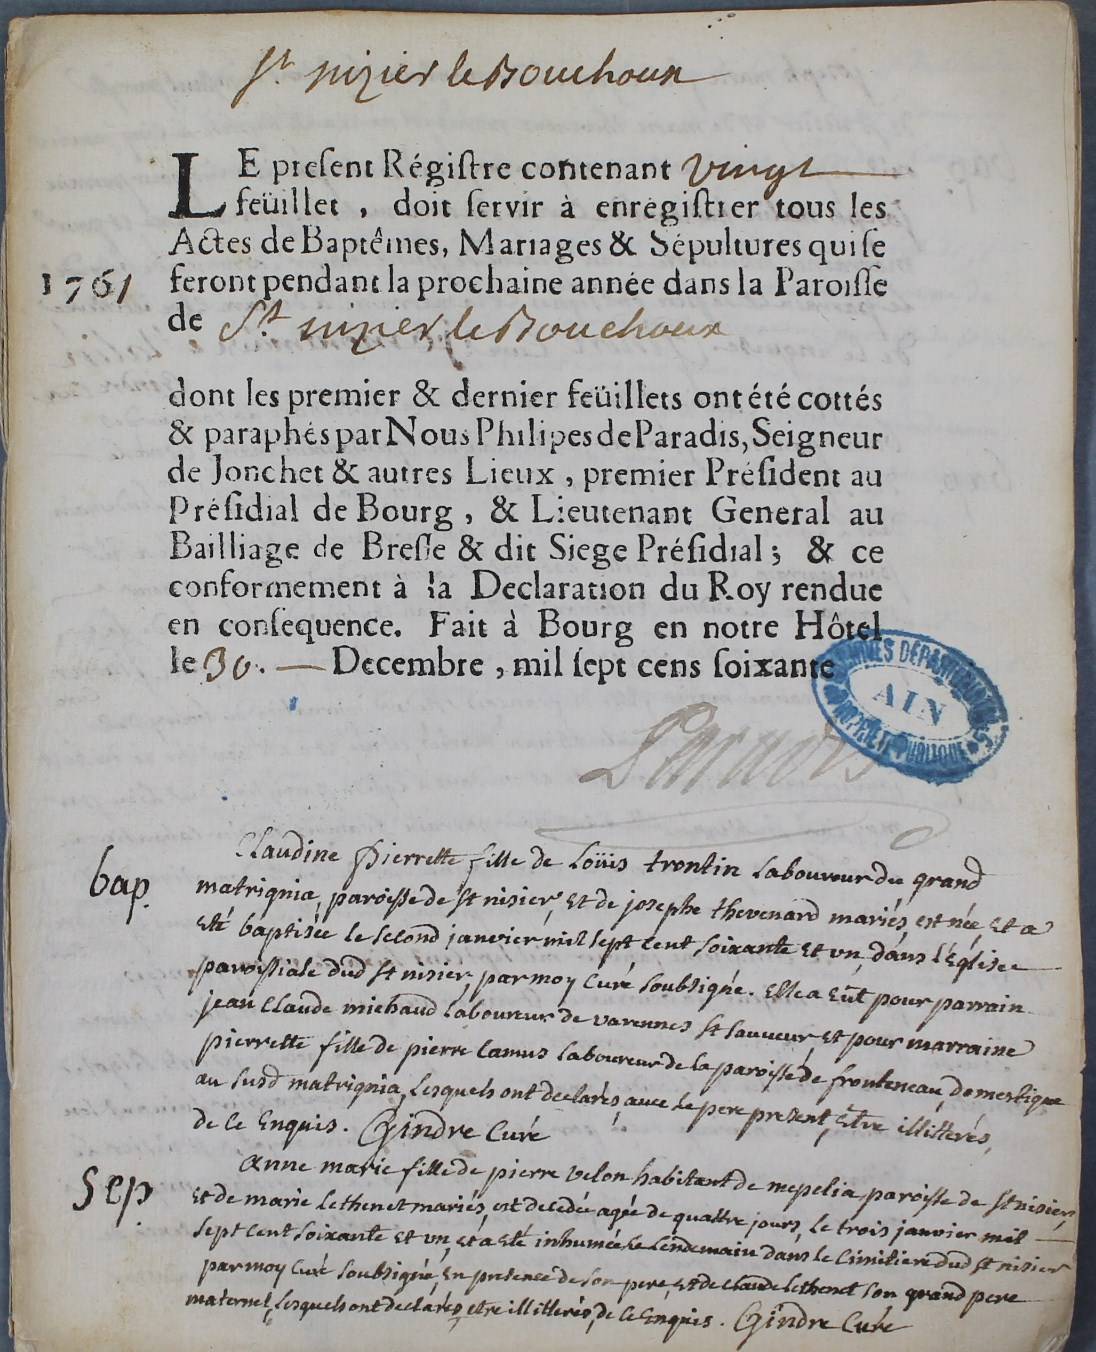 St nizier le Bouchoux
LE preſent Régiſtre contenant vingt
feüillet , doit ſervir à enrégiſtrer tous les
Actes de Baptêmes, Mariages & Sépultures qui ſe
1761
feront pendant la prochaine année dans la Paroiſſe
de St. nizier le Bouchoux
dont les premier & dernier feüillets ont été cottés
& paraphés par Nous Philipes de Paradis, Seigneur
de Jonchet & autres Lieux , premier Préſident au
Préſidial de Bourg , & Lieutenant General au
Bailliage de Breſſe & dit Siege Préſidial ; & ce
conformement à la Declaration du Roy rendue
en conſequence. Fait à Bourg en notre Hôtel
le 30. — Decembre , mil ſept cens ſoixante
ARCHIVES DÉPARTEMENTALES
AIN
PROPRIÉTÉ PUBLIQUE
Paradis
bap.
Claudine pierrette fille de Loüis trontin Laboureur du grand
matrignia, paroisse de St nisier, Et de josephe thevenard mariés, est née Et a
Eté baptisée le second janvier mil sept cent soixante Et vn, dans l'Eglise
paroissiale dud St nisier, par moy Curé soubsigné. Elle a Eüt pour parrain
jean Claude michaud Laboureur de varennes St sauveur Et pour marraine
pierrette fille de pierre Camus Laboureur de la paroisse de frontenau, domestique
au susd matrignia, Lesquels ont declarés, avec Le pere present, Etre illitterés,
de Ce Enquis. Gindre Curé
Sep
Anne marie fille de pierre velon habitant de mepelia, paroisse de St nisier,
Et de marie Lethenet mariés, est decedée agée de quattre jours, Le trois janvier mil
sept cent soixante Et vn, Et a Eté inhumée Le Lendemain dans le Cimitiere dud St nisier
par moy Curé soubsigné, En presence de son pere, Et de Claude Lethenet son grand pere
maternel, Lesquels ont declarés, etre illitterés, de Ce Enquis. Gindre Curé